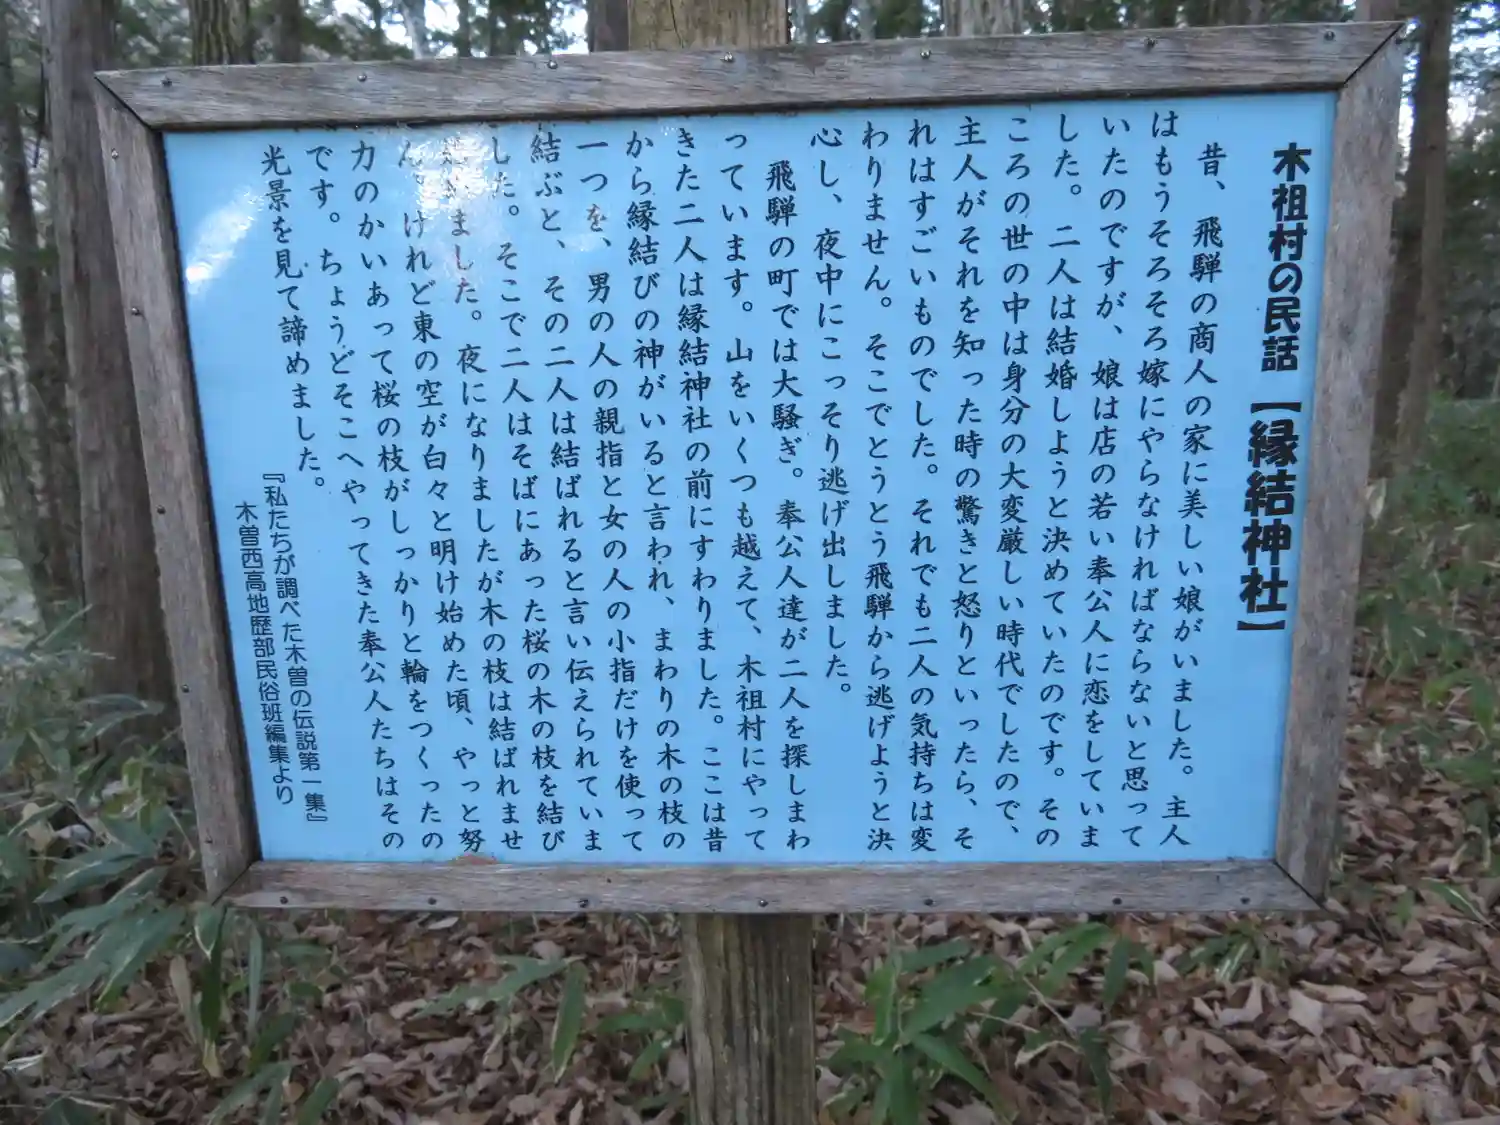 木祖村の民話 【縁結神社】
昔、飛騨の商人の家に美しい娘がいました。主人
はもうそろそろ嫁にやらなければならないと思って
いたのですが、娘は店の若い奉公人に恋をしていま
した。二人は結婚しようと決めていたのです。その
ころの世の中は身分の大変厳しい時代でしたので、
主人がそれを知った時の驚きと怒りといったら、そ
れはすごいものでした。それでも二人の気持ちは変
わりません。そこでとうとう飛騨から逃げようと決
心し、夜中にこっそり逃げ出しました。
飛騨の町では大騒ぎ。奉公人達が二人を探しまわ
っています。山をいくつも越えて、木祖村にやって
きた二人は縁結神社の前にすわりました。ここは昔
から縁結びの神がいると言われ、まわりの木の枝の
一つを、男の人の親指と女の人の小指だけを使って
結ぶと、その二人は結ばれると言い伝えられていま
した。そこで二人はそばにあった桜の木の枝を結び
ました。夜になりましたが木の枝は結ばれませ
ん。けれど東の空が白々と明け始めた頃、やっと努
力のかいあって桜の枝がしっかりと輪をつくったの
です。ちょうどそこへやってきた奉公人たちはその
光景を見て諦めました。
『私たちが調べた木曽の伝説第一集』
木曽西高地歴部民俗班編集より